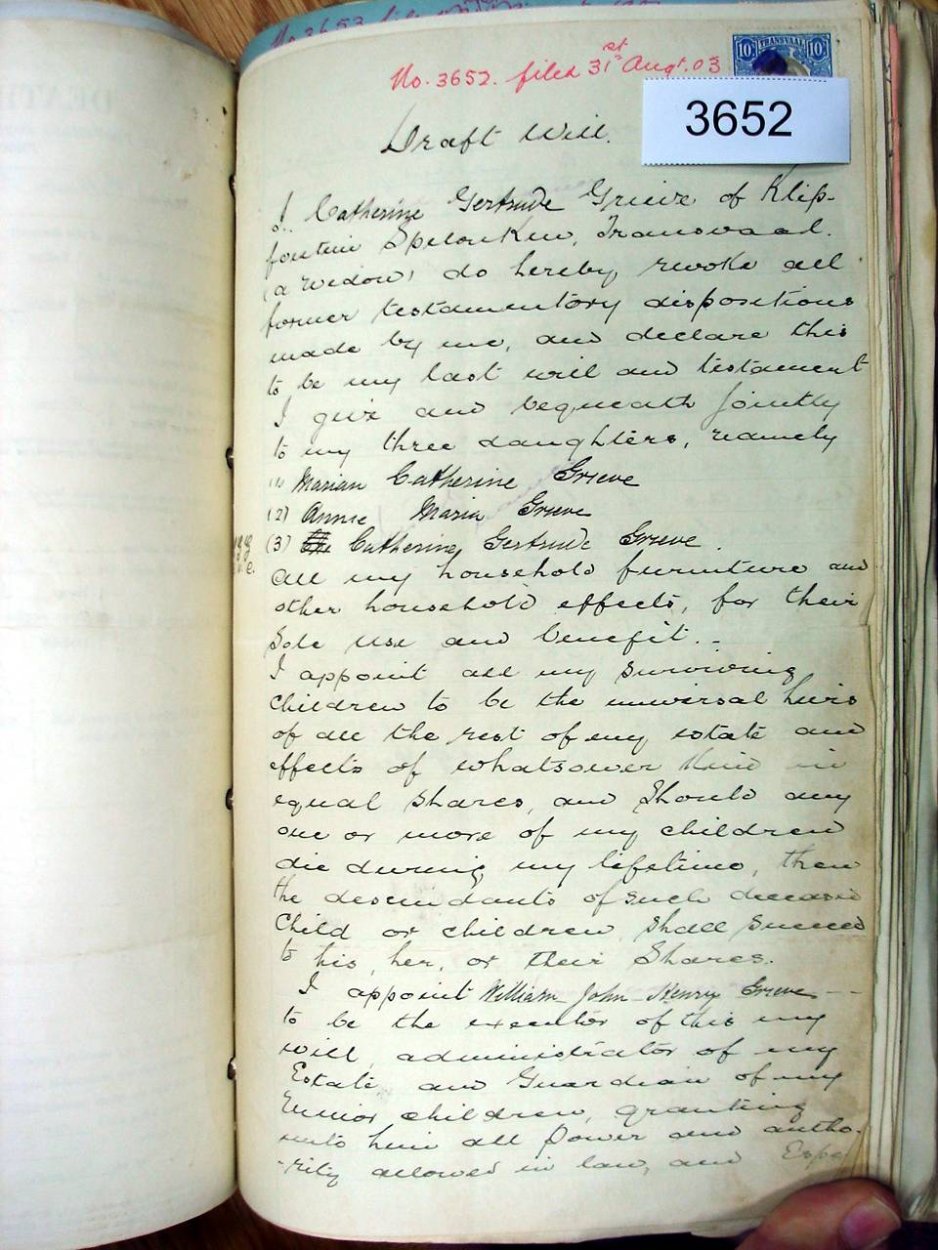 No. 3652. filed 31st Augt. 03
10 TRANSVAAL 10
3652
Draft Will.
I Catherine Gertrude Grieve of Klip-
fontein Spelonken, Transvaal.
(a widow) do hereby revoke all
former testamentory dispositions
made by me, and declare this
to be my last will and testament
I give and bequeath jointly
to my three daughters, namely
(1) Marian Catherine Grieve
(2) Annie Maria Grieve
(3) Catherine Gertrude Grieve.
all my household furniture and
other household effects, for their
sole use and benefit.
I appoint all my surviving
children to be the universal heirs
of all the rest of my estate and
effects of whatsoever kind in
equal shares, and should any
one or more of my children
die during my lifetime, then
the descendants of such deceased
child or children shall succeed
to his, her, or their shares.
I appoint William John Henry Grieve
to be the executor of this my
will, administrator of my
Estate and Guardian of my
minor children, granting
unto him all power and autho-
rity allowed in law, and Espe